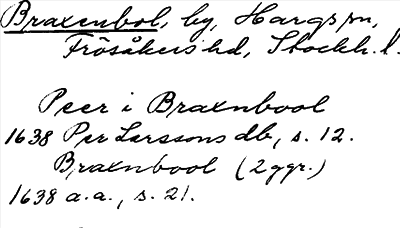 Braxenbol, by, Hargs sn,
Frösåkers hd, Stockh. l.
Peer i Braxnbool
1638 Per Larssons db, s. 12.
Braxnbool (2 ggr.)
1638 a.a., s. 21.